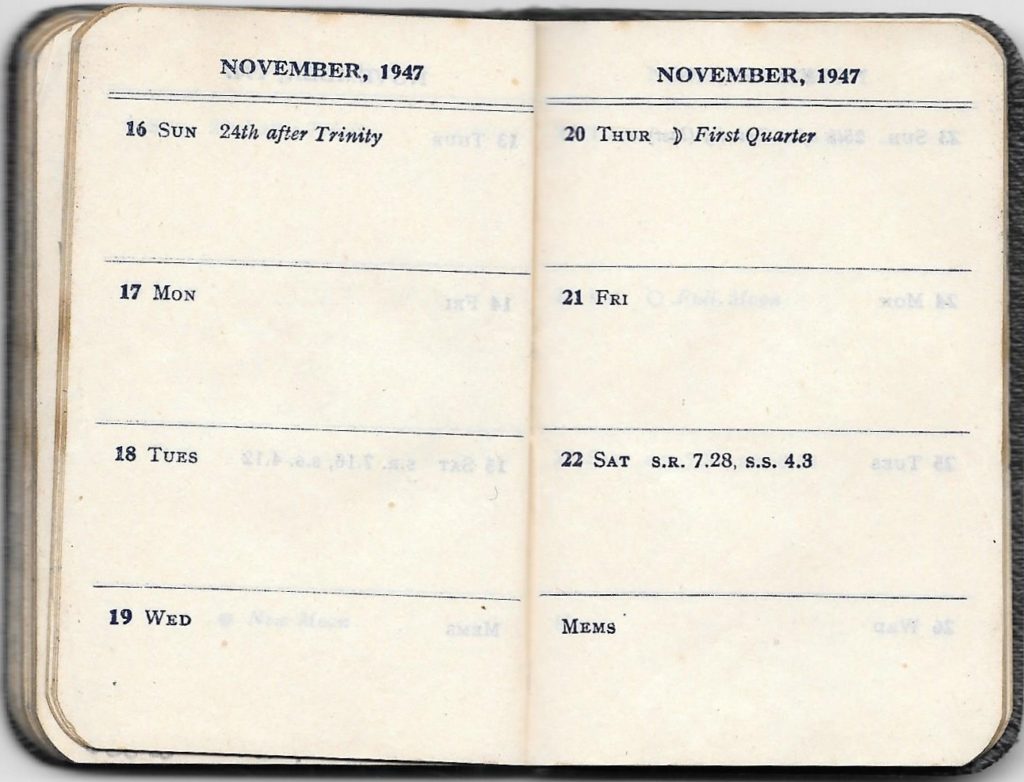 NOVEMBER, 1947
16 SUN 24th after Trinity
17 MON
18 TUES
19 WED
NOVEMBER, 1947
20 THUR ☽ First Quarter
21 FRI
22 SAT S.R. 7.28, S.S. 4.3
MEMS